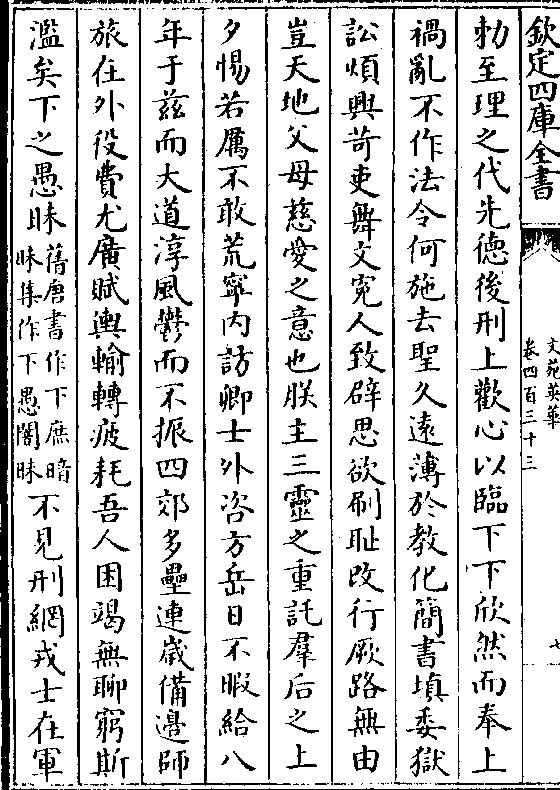 欽定四庫全書
文苑英華
卷四百三十三
七
勑至理之代先德後刑上歡心以臨下下欣然而奉上
禍亂不作法令何施去聖久遠薄於教化簡書填委獄
訟煩興苛吏舞文寃人致辟思欲刷耻改行厥路無由
豈天地父母慈愛之意也朕主三靈之重託羣后之上
夕惕若厲不敢荒寧内訪卿士外咨方岳日不暇給八
年于兹而大道淳風鬱而不振四郊多壘連嵗備邊師
旅在外役費尤廣賦輿輸轉疲耗吾人困竭無聊窮斯
濫矣下之愚昧舊唐書作下庶暗昧集作下愚闇昧不見刑網戎士在軍